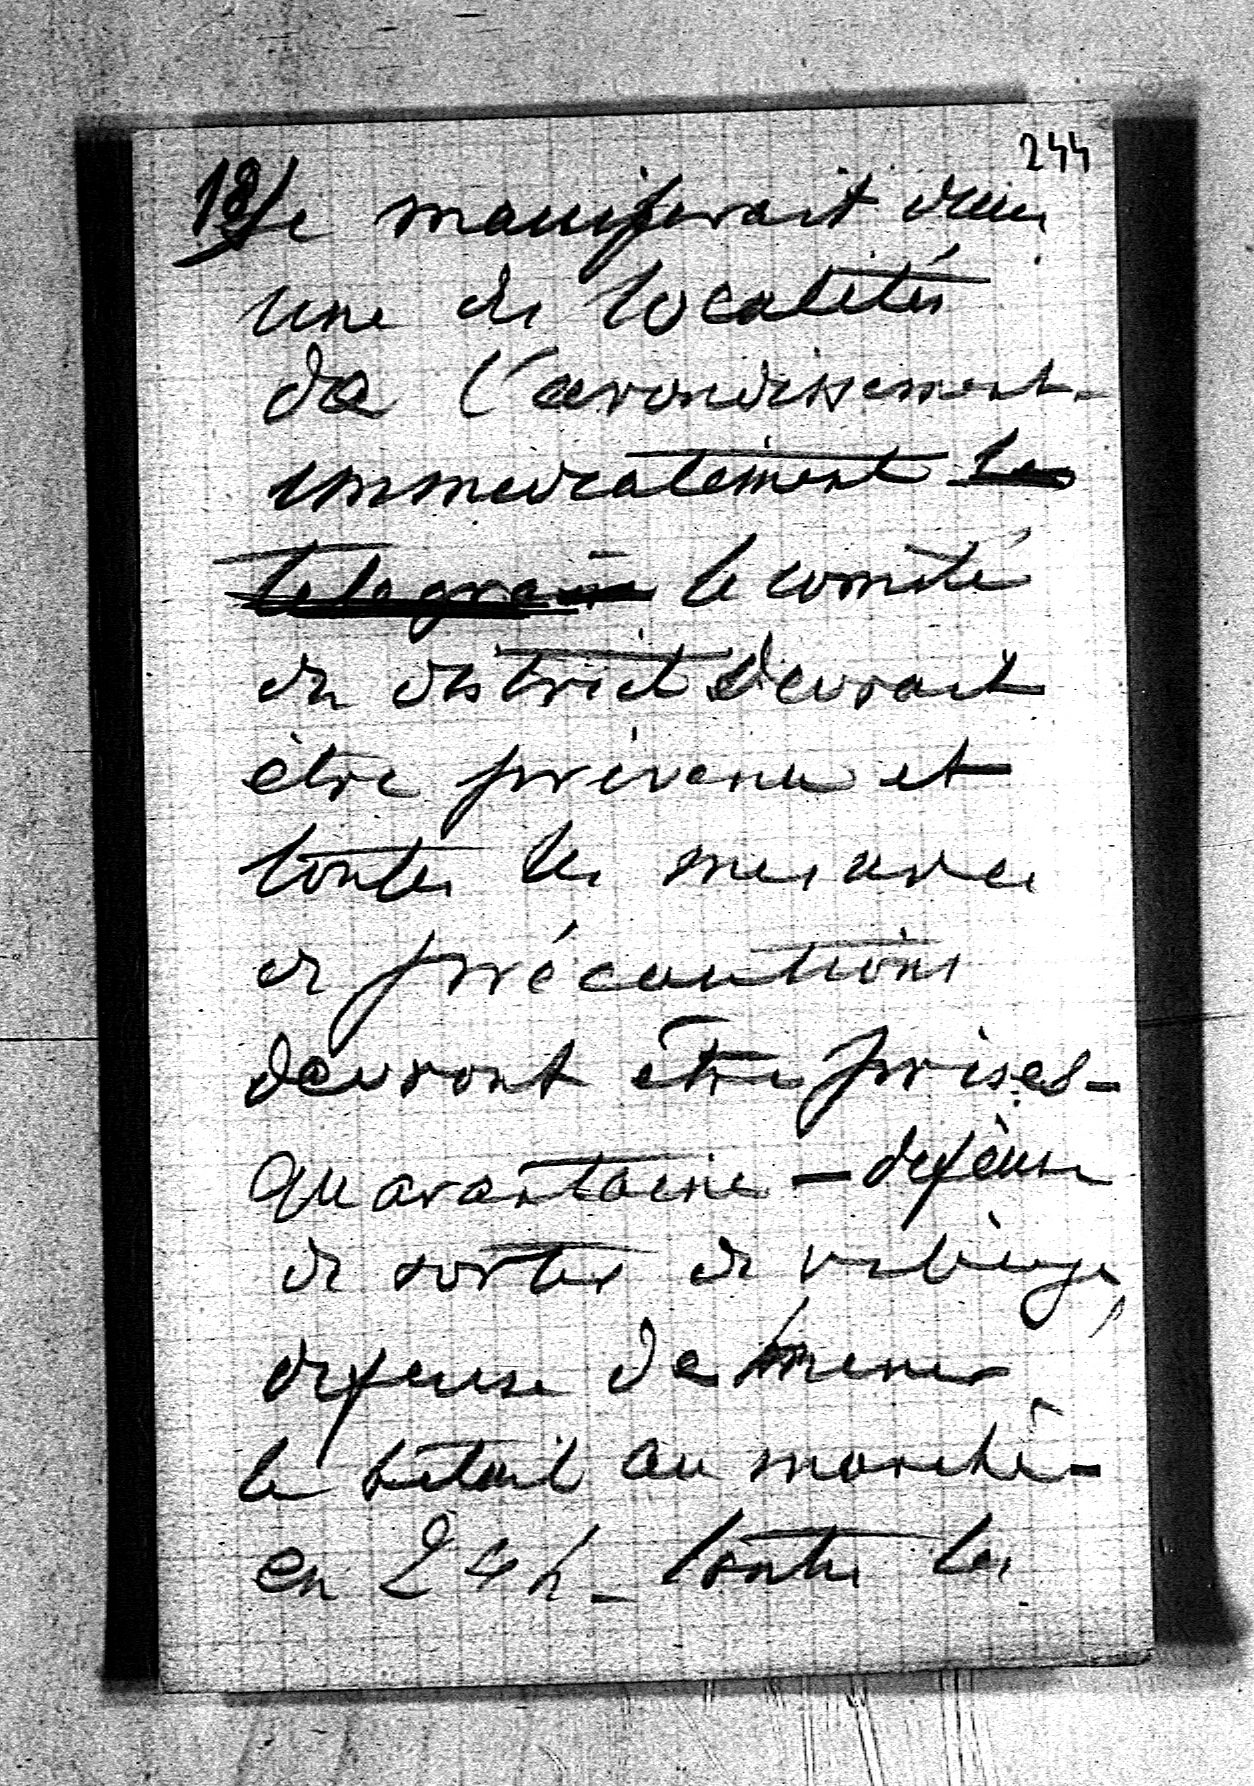 244
18/ se manifesrait dans
une des localités
de l'arrondissement -
immédiatement le
télégram le comité
de district devrait
être prévenu et
toutes les mesures
de précautions
devront être prises -
quarantaine - défense
de sortir de
défense de mener
le bétail au marché -
en 24 h - toutes les